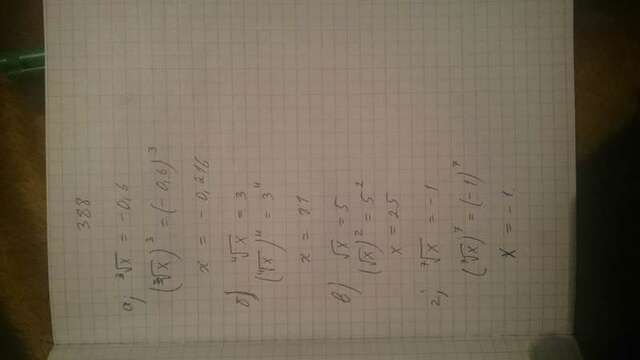 388
а) ∛x = -0,6
(∛x)³ = (-0,6)³
x = -0,216
б) ∜x = 3
(∜x)⁴ = 3⁴
x = 81
в) √x = 5
(√x)² = 5²
x = 25
г) ⁷√x = -1
(⁷√x)⁷ = (-1)⁷
x = -1